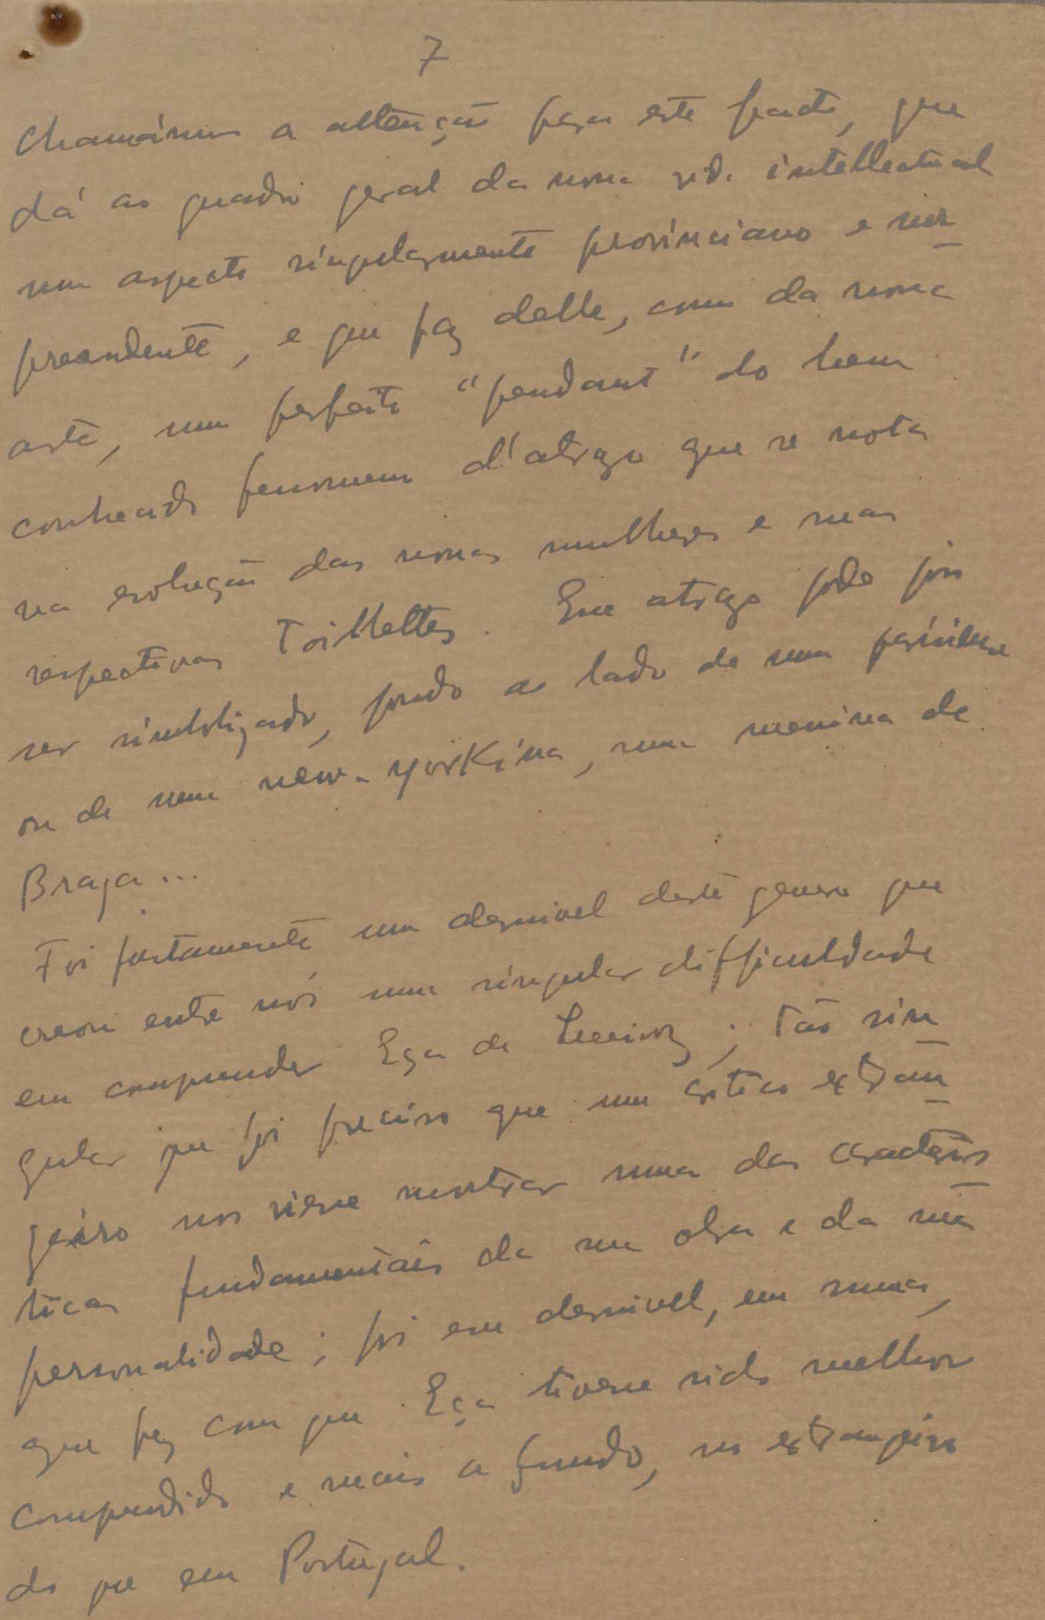 7
Chamámos a attenção para este facto, que
dá ao quadro geral da nossa vida intellectual
um aspecto singularmente provinciano e sur-
preendente, e que faz delle, como da nossa
arte, um perfeito "pendant" do bem
conhecido fenomeno d'atrazo que se nota
na evolução das nossas mulheres e suas
respectivas toillettes. Esse atrazo pode pois
ser simbolizado, pondo ao lado de uma parisiense
ou de uma new-yorkina, uma menina de
Braga...
Foi justamente um desnivel deste genero que
creou entre nós uma singular difficuldade
em comprender Eça de Queiroz; tão sin-
gular que foi preciso que um critico extran-
geiro nos viesse mostrar uma das caracteris-
ticas fundamentais da sua obra e da sua
personalidade; foi esse desnivel, em summa,
que fez com que Eça tivesse sido melhor
comprendido e mais a fundo, no extrangeiro
do que em Portugal.